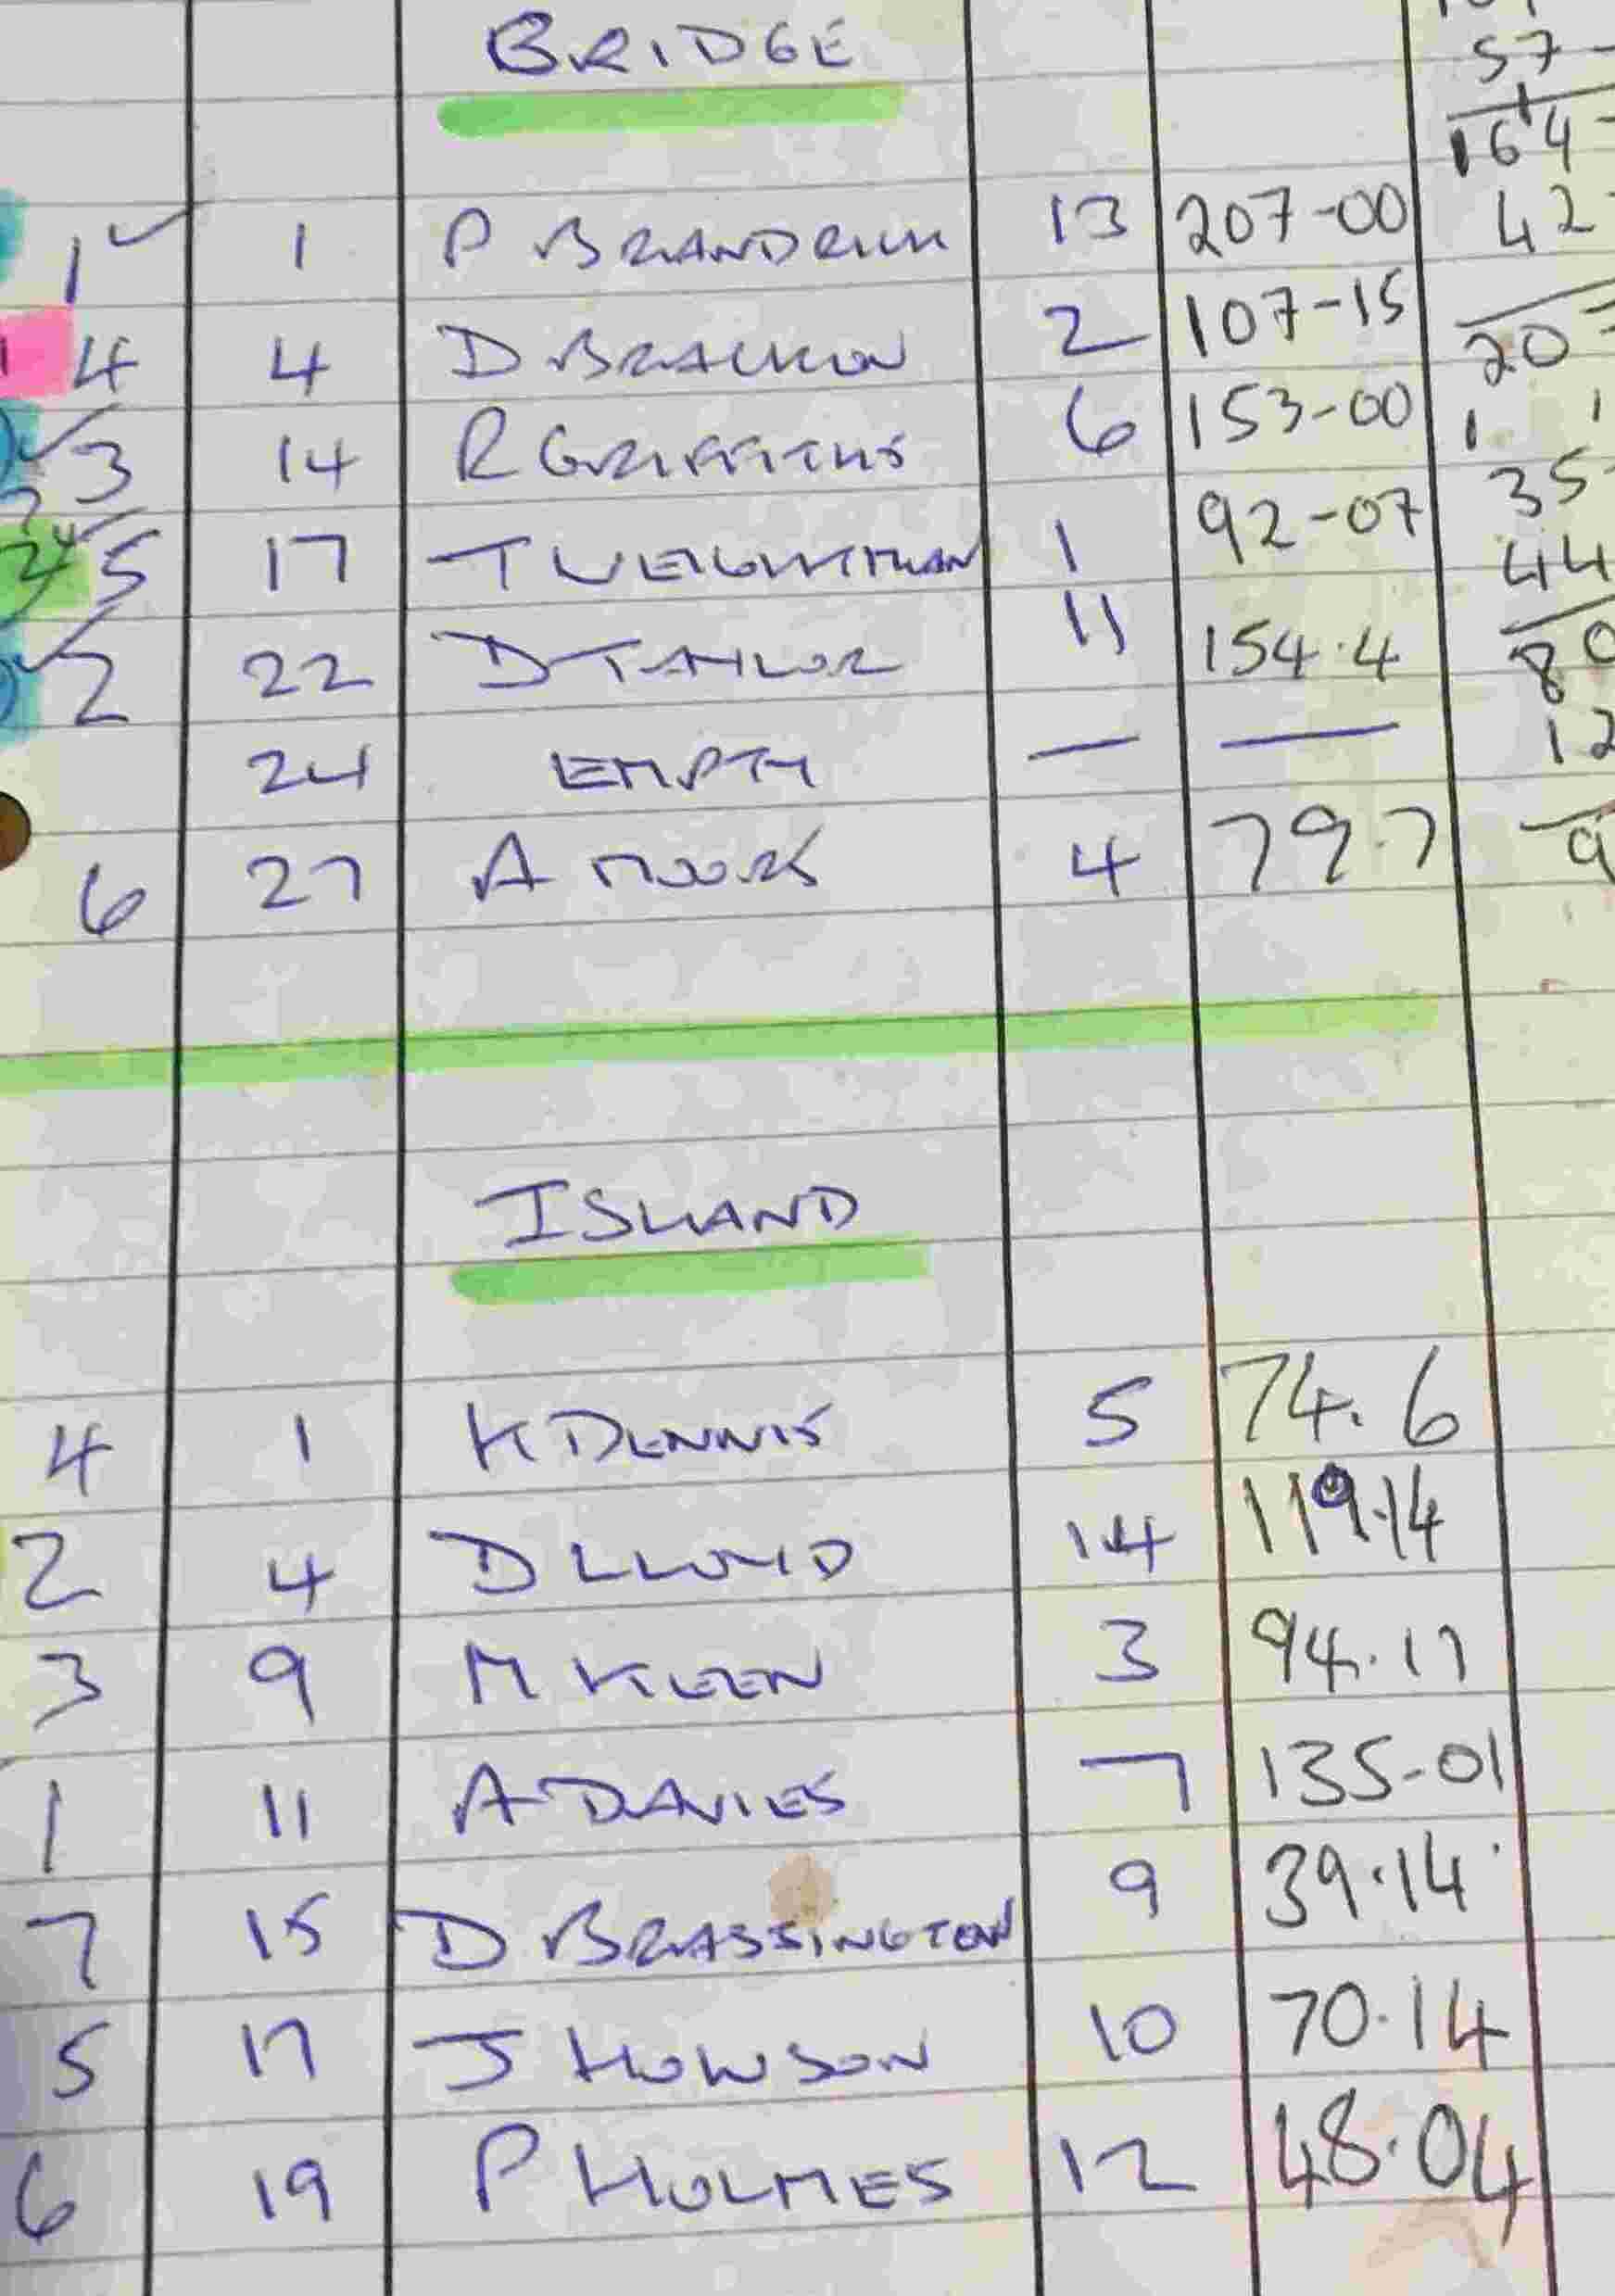 BRIDGE
57
164
1 1 P BRANDRICK 13 207-00 42
4 4 D BRACKON 2 107-15 20
3 14 R GRIFFITHS 6 153-00 35
5 17 T WEIGHTMAN 1 92-07 44
2 22 D TAYLOR 11 154.4 80
24 EMPTY — — 12
6 27 A MOORE 4 79.7 9
ISLAND
4 1 K DENNIS 5 74.6
2 4 D LLOYD 14 119.14
3 9 M KEEN 3 94.11
1 11 A DAVIES 7 135-01
7 15 D BRASSINGTON 9 39.14
5 17 J HOWSON 10 70.14
6 19 P HOLMES 12 48.04